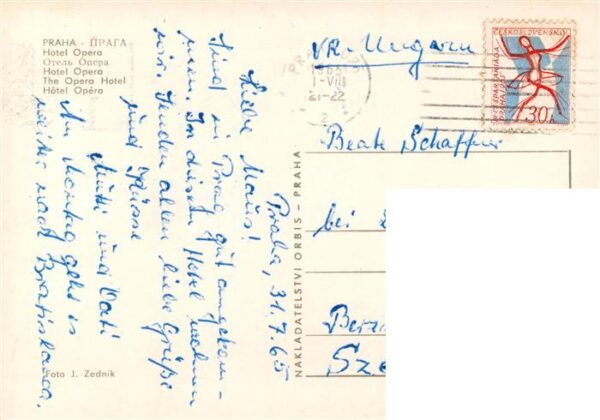 PRAHA - ПРАГА
Hotel Opera
Отель Опера
Hotel Opera
The Opera Hotel
Hôtel Opéra
Praha, 31.7.65
Liebe Maus!
Sind in Prag gut angekom-
men. In diesem Hotel wohnen
wir. Senden allen liebe Grüße
und Küsse
Mutti und Vati
Am Montag geht es
weiter nach Bratislava.
Foto J. Zedník
NAKLADATELSTVÍ ORBIS - PRAHA
VR. Ungarn
ČESKOSLOVENSKO
PRAHA 1965
30h
1965
1-VIII
21-22
2
Beate
bei